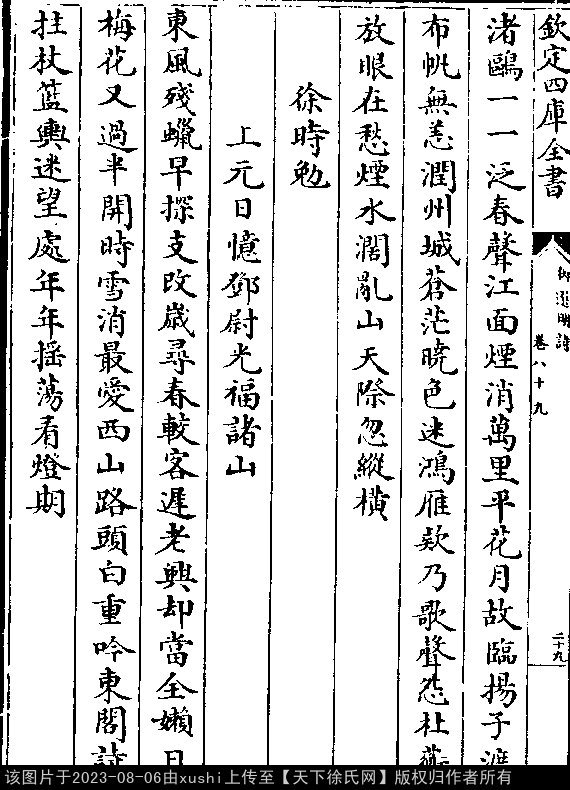 欽定四庫全書
御選明詩
卷八十九
二十九
渚鷗一一泛春聲江面煙消萬里平花月故臨揚子渡
布帆無恙潤州城蒼茫曉色迷鴻雁欸乃歌聲怨杜蘅
放眼在愁煙水濶亂山天際忽縱橫
徐時勉
上元日憶鄧尉光福諸山
東風殘蠟早探支改嵗尋春較客遲老興却當全嬾日
梅花又過半開時雪消最愛西山路頭白重吟東閣詩
拄杖籃輿迷望處年年揺蕩看燈期
该图片于2023-08-06由xushi上传至【天下徐氏网】版权归作者所有